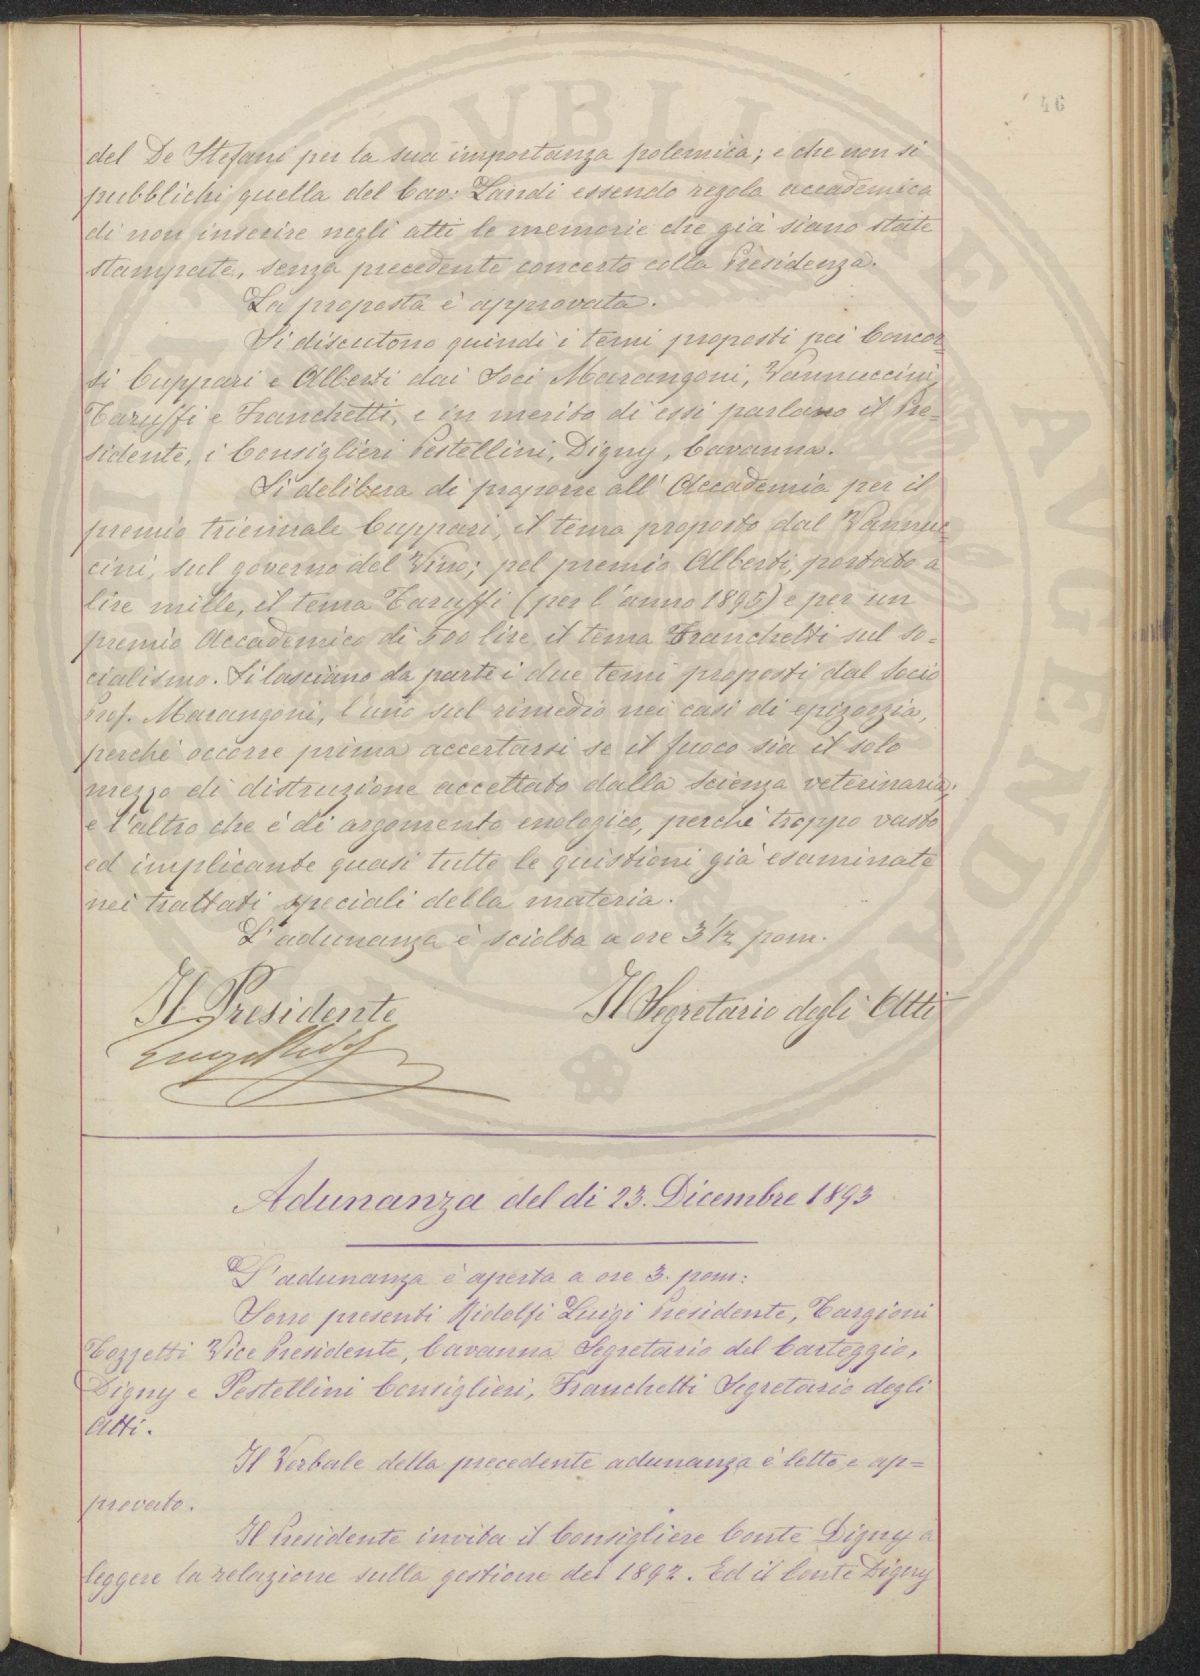 46
del De Stefani per la sua importanza polemica; e che non si
pubblichi quella del Cav: Landi essendo regola accademica
di non inserire negli atti le memorie che già siano state
stampate, senza precedente concerto colla Presidenza.
La proposta è approvata.
Si discutono quindi i temi proposti pei Concor=
si Cuppari e Alberti dai Soci Marangoni, Vannuccini,
Taruffi e Franchetti, e in merito di essi parlano il Pre=
sidente, i Consiglieri Pestellini, Digny, Cavanna.
Si delibera di proporre all'Accademia per il
premio triennale Cuppari, il tema proposto dal Vannuc=
cini, sul governo del Vino; pel premio Alberti, portato a
lire mille, il tema Taruffi (per l'anno 1895) e per un
premio Accademico di 500 lire il tema Franchetti sul so=
cialismo. Si lasciano da parte i due temi proposti dal Socio
Prof. Marangoni, l'uno sul rimedio nei casi di epizoozia,
perchè occorre prima accertarsi se il fuoco sia il solo
mezzo di distruzione accettato dalla scienza veterinaria;
e l'altro che è di argomento enologico, perchè troppo vasto
ed implicante quasi tutte le quistioni già esaminate
nei trattati speciali della materia.
L'adunanza è sciolta a ore 3 1/2 pom.
Il Presidente Il Segretario degli Atti
Adunanza del di 23. Dicembre 1893
L'adunanza è aperta a ore 3. pom:
Sono presenti Ridolfi Luigi Presidente, Targioni
Tozzetti Vice Presidente, Cavanna Segretario del Carteggio,
Digny e Pestellini Consiglieri, Franchetti Segretario degli
Atti.
Il Verbale della precedente adunanza è letto e ap=
provato.
Il Presidente invita il Consigliere Conte Digny a
leggere la relazione sulla gestione del 1892. Ed il Conte Digny